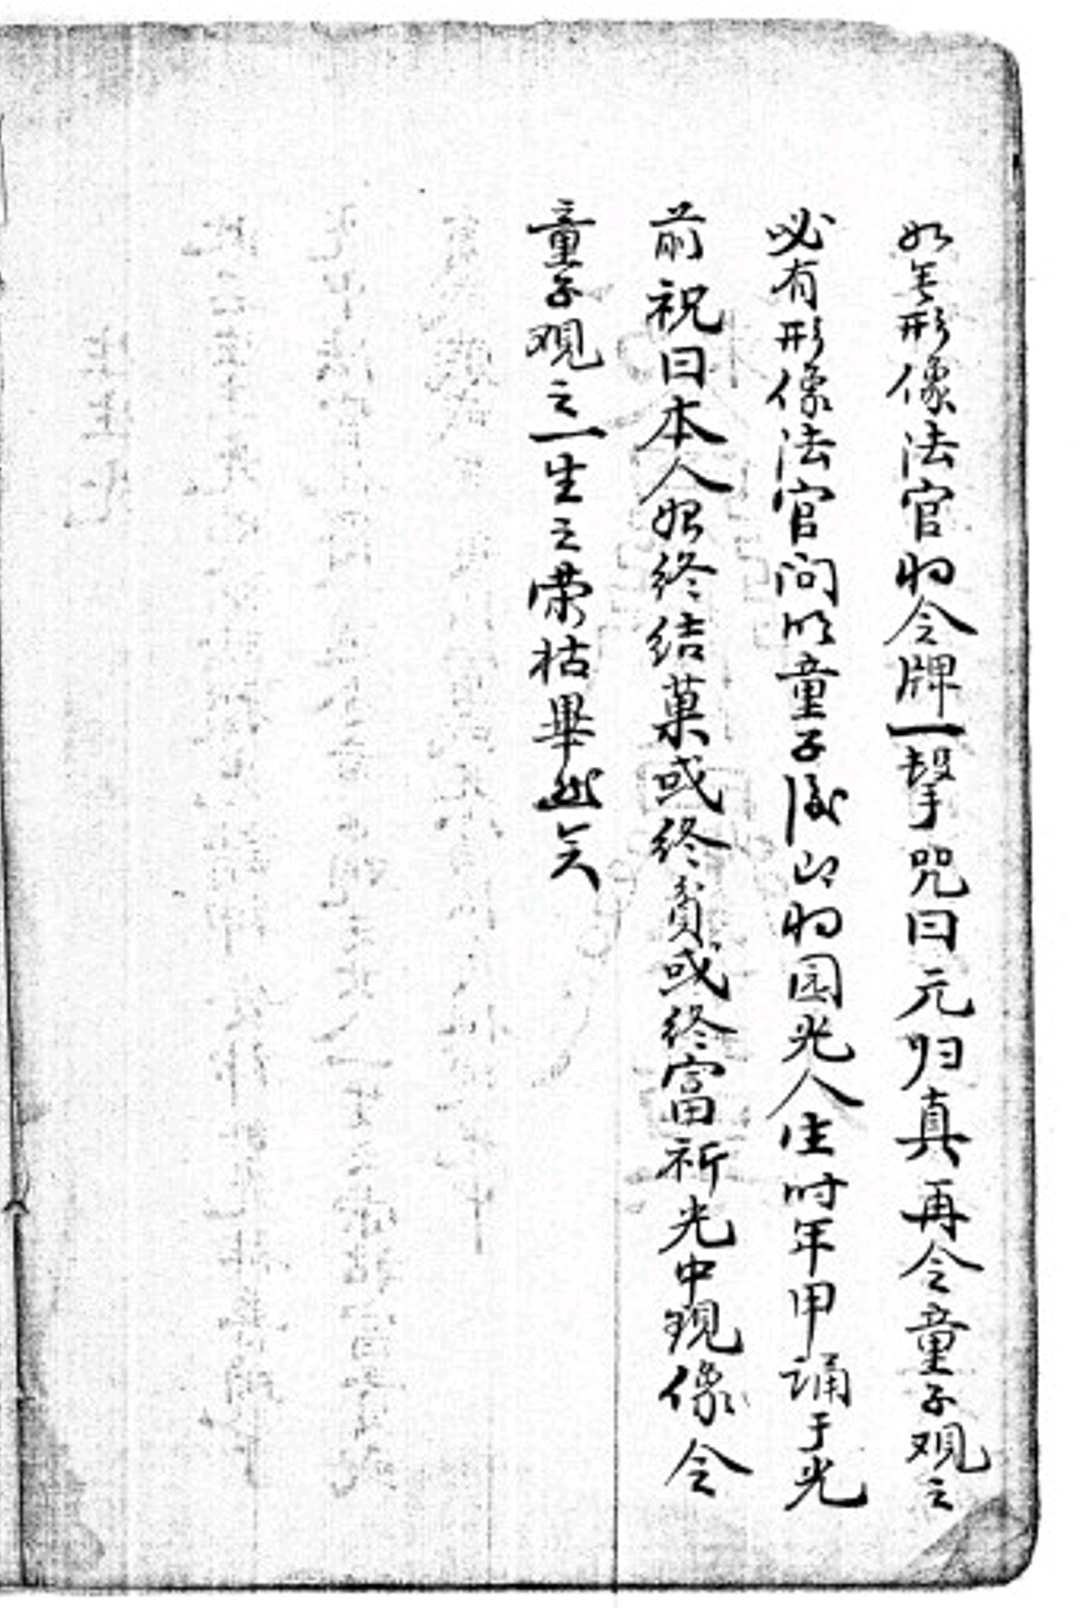 如無形像法官将令牌一擊咒曰元归真再令童子观之
必有形像法官问明童子後即将园光人生时年甲诵于光
前祝曰本人始终结菓或终貧或终富祈光中現像令
童子观之一生之荣枯畢矣